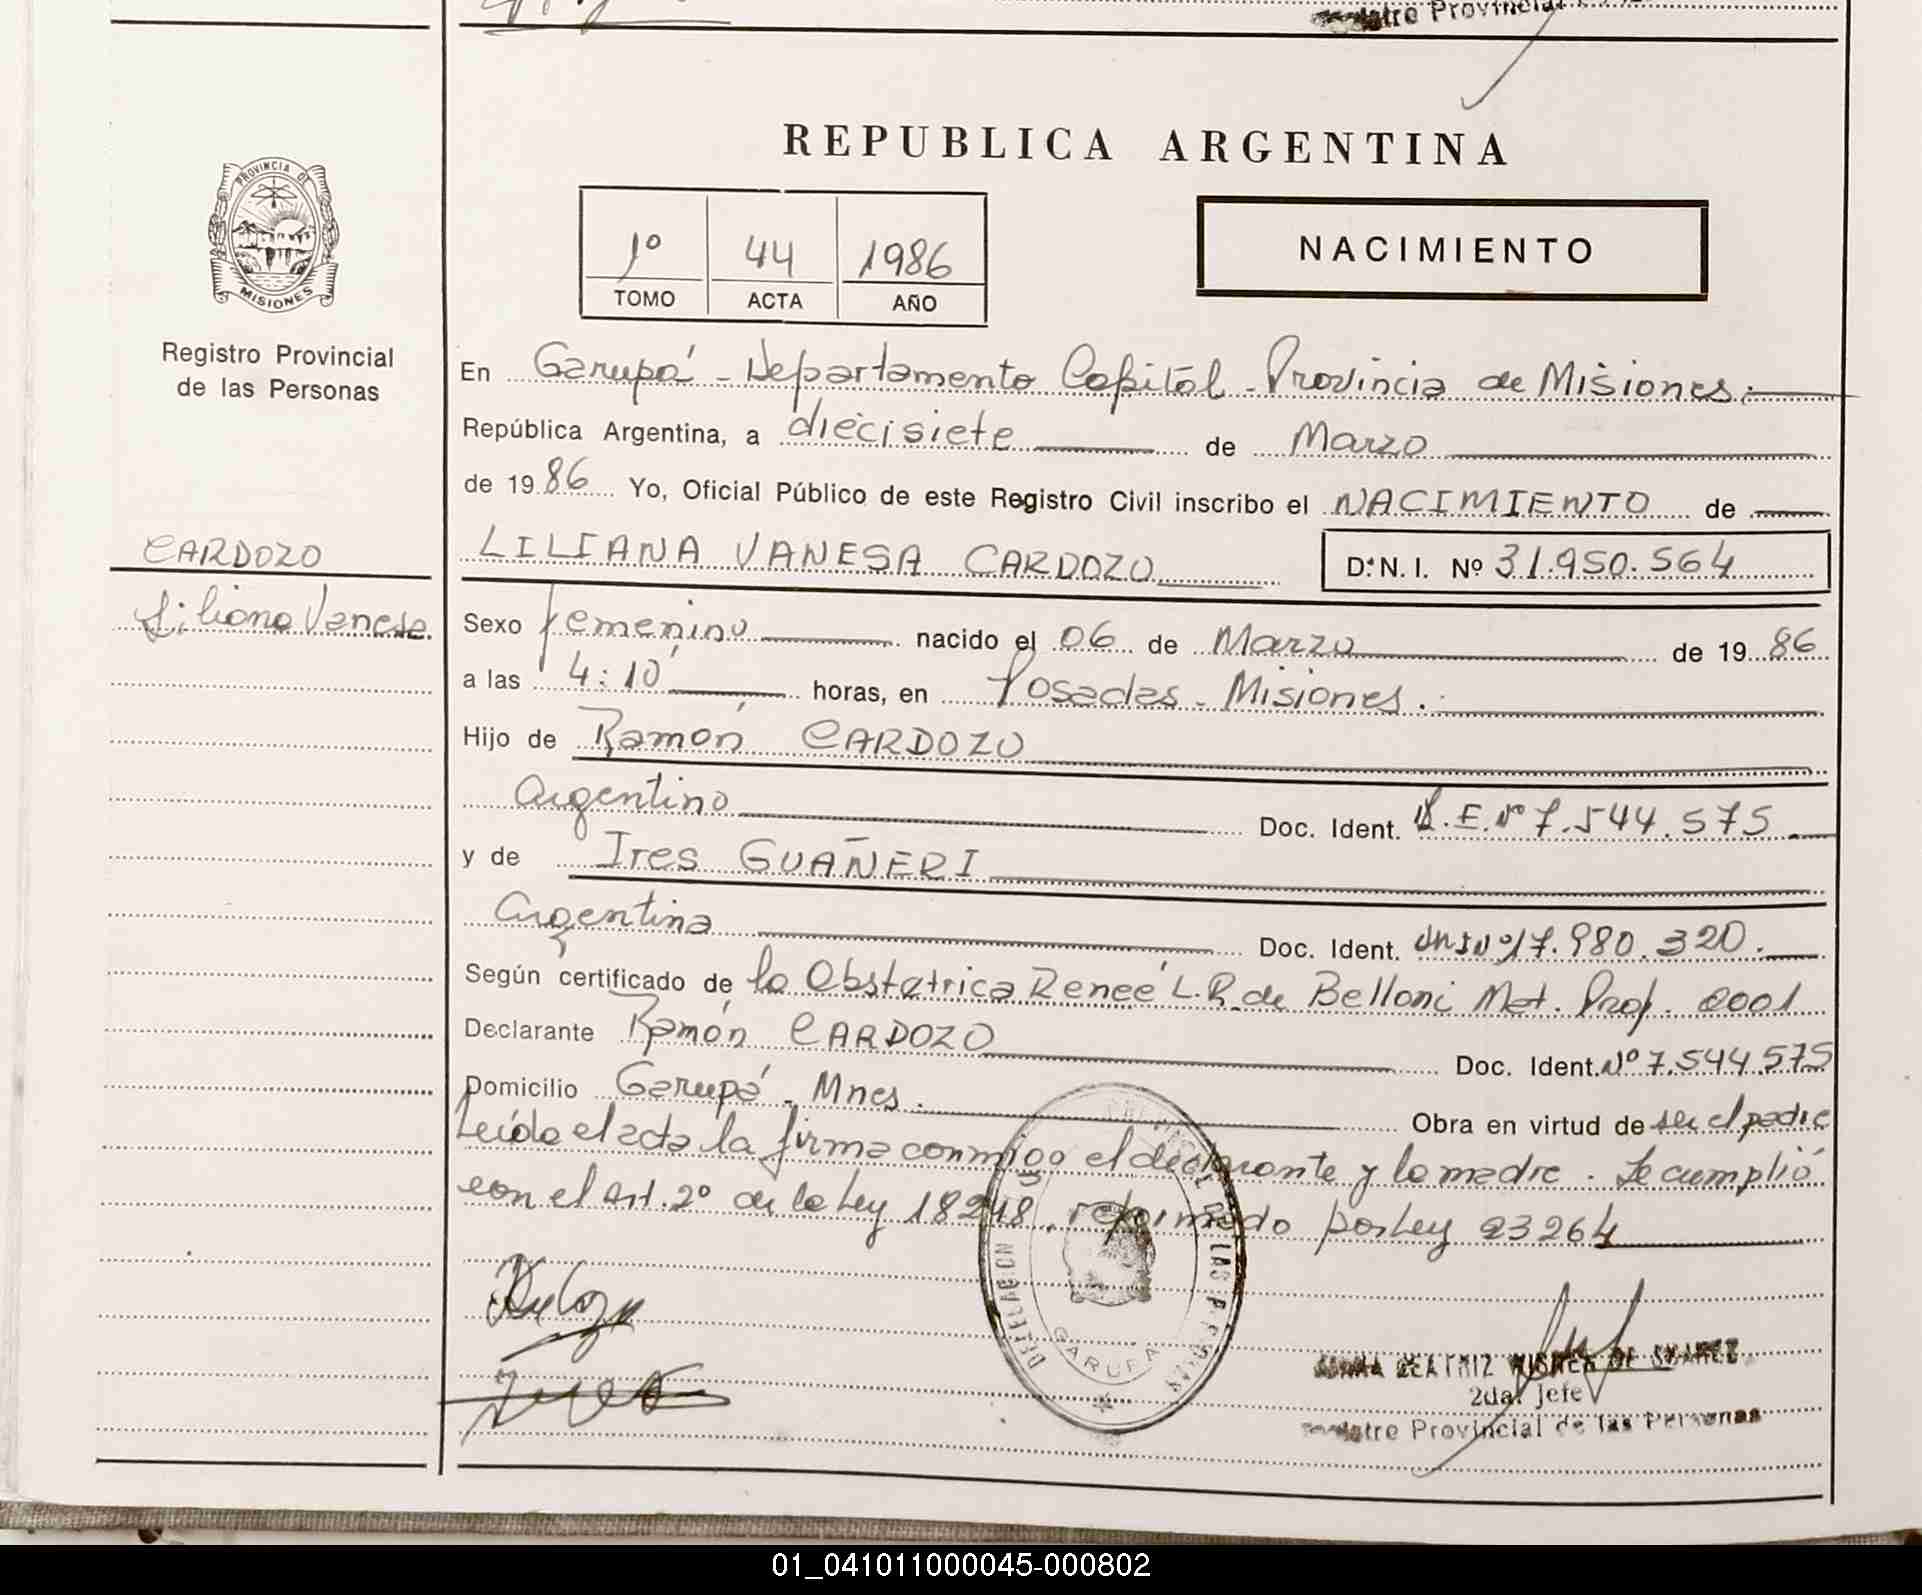 Registro Provincial
REPUBLICA ARGENTINA
PROVINCIA DE
MISIONES
Registro Provincial
de las Personas
1º 44 1986
TOMO ACTA AÑO
NACIMIENTO
En Garupá - Departamento Capital - Provincia de Misiones.
República Argentina, a diecisiete de Marzo
de 1986 Yo, Oficial Público de este Registro Civil inscribo el NACIMIENTO de
CARDOZO
Liliana Vanesa
LILIANA VANESA CARDOZO D.N.I. Nº 31.950.564
Sexo femenino nacido el 06 de Marzo de 1986
a las 4:10 horas, en Posadas - Misiones.
Hijo de Ramón CARDOZO
Argentino Doc. Ident. L.E.Nº 7.544.575
y de Ires GUAÑERI
Argentina Doc. Ident. Nº 17.980.320.
Según certificado de la Obstatrica Reneé L.R. de Belloni Mat. Prof. 0001
Declarante Ramón CARDOZO Doc. Ident. Nº 7.544.575
Domicilio Garupá - Mnes. Obra en virtud de ser el padre
Leída el acta la firma conmigo el declarante y la madre. Se cumplió
con el art. 2º de la Ley 18248, reformado por Ley 23264
DELEGACION
DE LAS
GARUPA
BEATRIZ DE SUAREZ
2da. Jefe
Registro Provincial de las Personas
01_041011000045-000802